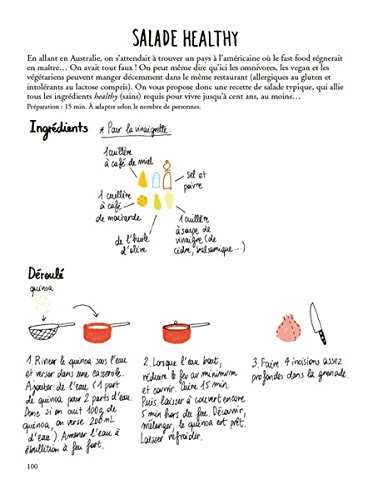 SALADE HEALTHY
En allant en Australie, on s'attendait à trouver un pays à l'américaine où le fast food régnerait
en maître... On avait tout faux ! On peut même dire qu'ici les omnivores, les vegan et les
végétariens peuvent manger décemment dans le même restaurant (allergiques au gluton et
intolérants au lactose compris). On vous propose donc une recette de salade typique, qui allie
tous les ingrédients healthy (sains) requis pour vivre jusqu'à cent ans, au moins...
Préparation : 15 min. À adapter selon le nombre de personnes.
Ingrédients
* Pour la vinaigrette
1 cuillère
à café de miel
sel et
poivre
1 cuillère
à café
de moutarde
de l'huile
d'olive
1 cuillère
à soupe de
vinaigre (de
cidre, balsamique...)
Déroulé
quinoa
1. Rincer le quinoa sous l'eau
et verser dans une casserole.
Ajouter de l'eau (1 part
de quinoa pour 2 parts d'eau.
Donc si on cuit 100g de
quinoa, on verse 200ml
d'eau). Amener l'eau à
ébullition à feu fort.
2. Lorsque l'eau bout,
réduire le feu au minimum
et couvrir. Cuire 15 min.
Puis laisser à couvert encore
5 min hors du feu. Découvrir,
mélanger, le quinoa est prêt.
Laisser refroidir.
3. Faire 4 incisions assez
profondes dans la grenade.
100